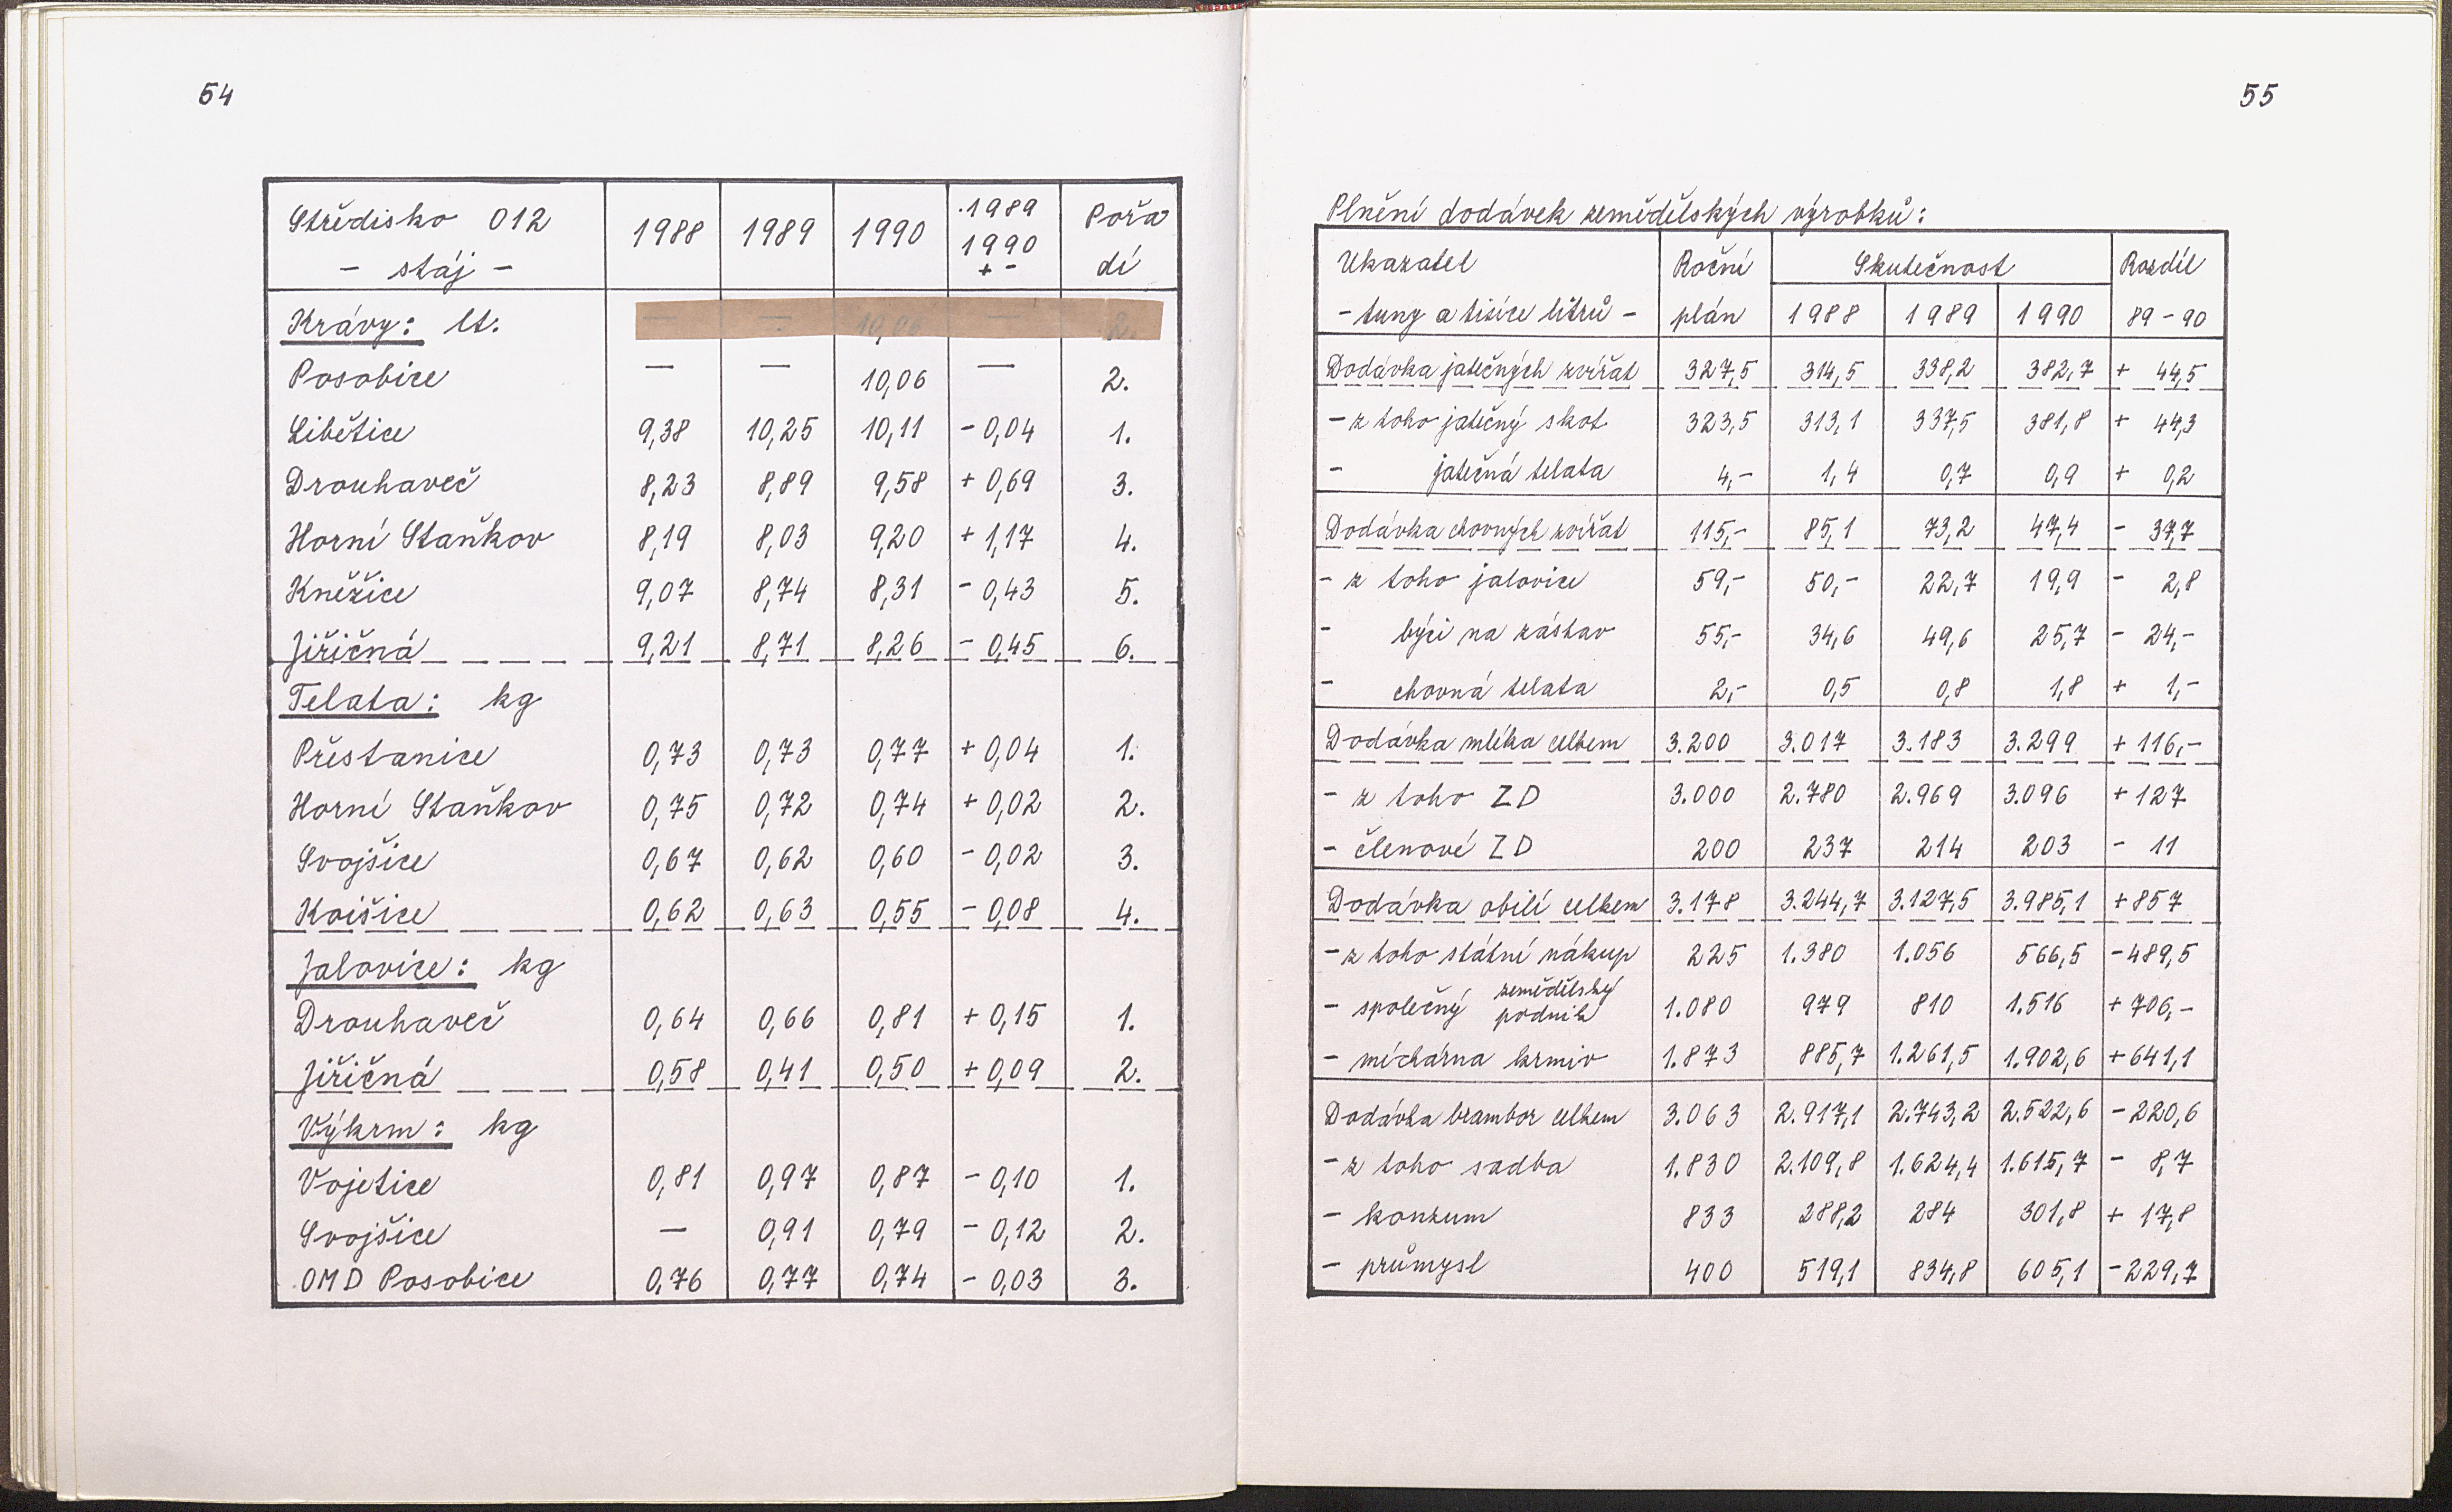 54
Středisko 012 1988 1989 1990 1989 1990 + - Pořa
- stáj - dí
Krávy: lt.
Posobice — — 10,06 — 2.
Libětice 9,38 10,25 10,11 - 0,04 1.
Drouhaveč 8,23 8,89 9,58 + 0,69 3.
Horní Staňkov 8,19 8,03 9,20 + 1,17 4.
Kněžice 9,07 8,74 8,31 - 0,43 5.
Jiřičná 9,21 8,71 8,26 - 0,45 6.
Telata: kg
Přestanice 0,73 0,73 0,77 + 0,04 1.
Horní Staňkov 0,75 0,72 0,74 + 0,02 2.
Svojšice 0,67 0,62 0,60 - 0,02 3.
Kvišice 0,62 0,63 0,55 - 0,08 4.
Jalovice: kg
Drouhaveč 0,64 0,66 0,81 + 0,15 1.
Jiřičná 0,58 0,41 0,50 + 0,09 2.
Výkrm: kg
Vojetice 0,81 0,97 0,87 - 0,10 1.
Svojšice — 0,91 0,79 - 0,12 2.
OMD Posobice 0,76 0,77 0,74 - 0,03 3.
55
Plnění dodávek zemědělských výrobků:
Ukazatel Roční Skutečnost Rozdíl
- tuny a tisíce litrů - plán 1988 1989 1990 89 - 90
Dodávka jatečných zvířat 327,5 314,5 338,2 382,7 + 44,5
- z toho jatečný skot 323,5 313,1 337,5 381,8 + 44,3
- jatečná telata 4,- 1,4 0,7 0,9 + 0,2
Dodávka chovných zvířat 115,- 85,1 73,2 47,4 - 37,7
- z toho jalovice 59,- 50,- 22,7 19,9 - 2,8
- býci na zástav 55,- 34,6 49,6 25,7 - 24,-
- chovná telata 2,- 0,5 0,8 1,8 + 1,-
Dodávka mléka celkem 3.200 3.017 3.183 3.299 + 116,-
- z toho ZD 3.000 2.780 2.969 3.096 + 127
- členové ZD 200 237 214 203 - 11
Dodávka obilí celkem 3.178 3.244,7 3.127,5 3.985,1 + 857
- z toho státní nákup 225 1.380 1.056 566,5 - 489,5
- společný zemědělský podnik 1.080 979 810 1.516 + 706,-
- míchárna krmiv 1.873 885,7 1.261,5 1.902,6 + 641,1
Dodávka brambor celkem 3.063 2.917,1 2.743,2 2.522,6 - 220,6
- z toho sadba 1.830 2.109,8 1.624,4 1.615,7 - 8,7
- konzum 833 288,2 284 301,8 + 17,8
- průmysl 400 519,1 834,8 605,1 - 229,7